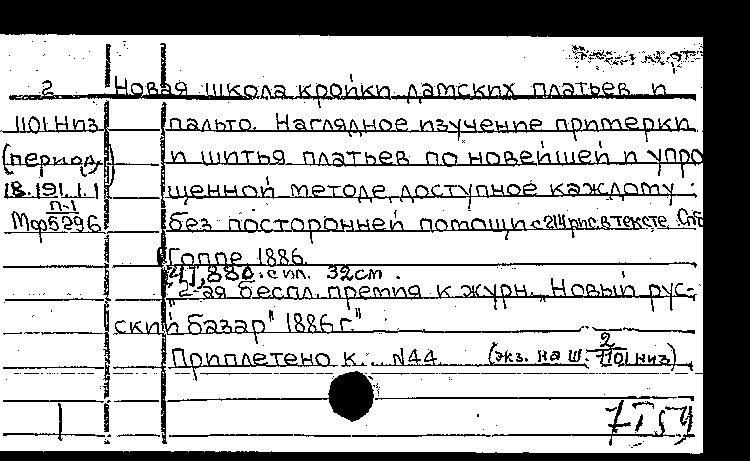 2 Новая школа кройки дамских платьев и
1101 Низ пальто. Наглядное изучение примерки
(период.) и шитья платьев по новейшей и упро
18.191.1.1 щенной методе, доступное каждому
п-1
Мф5296 без посторонней помощи с 214 рис. в тексте. Спб
Гоппе 1886.
с ил. 32см.
"2-ая беспл. премия к журн. „Новый рус-
ский базар" 1886 г."
Приплетено к... N44 (экз. на ш. 2/1101 низ)
7 I 59